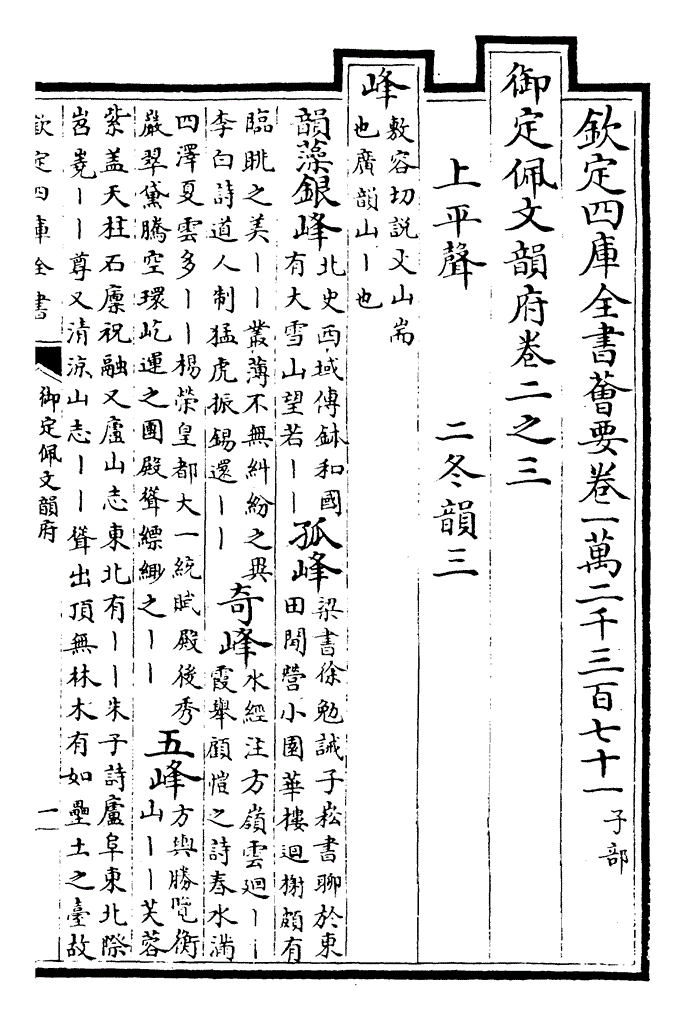 欽定四庫全書薈要卷一萬二千三百七十一 子部
御定佩文韻府卷二之三
上平聲 二冬韻三
峰
敷容切説文山耑
也廣韻山丨也
韻藻銀峰
北史西域傳鉢和國
有大雪山望若丨丨
孤峰
梁書徐勉誡子崧書聊於東
田閒營小園華樓迴榭頗有
臨眺之美丨丨叢薄不無糾紛之興
李白詩道人制猛虎振錫還丨丨
奇峰
水經注方嶺雲迴丨丨
霞舉顧愷之詩春水滿
四澤夏雲多丨丨楊榮皇都大一統賦殿後秀
嚴翠黛騰空環屹運之團殿聳縹緲之丨丨
五峰
方輿勝覽衡
山丨丨芙蓉
紫蓋天柱石廩祝融又廬山志東北有丨丨朱子詩廬阜東北際
岧嶤丨丨尊又清涼山志丨丨聳出頂無林木有如壘土之臺故
欽定四庫全書
御定佩文韻府
一